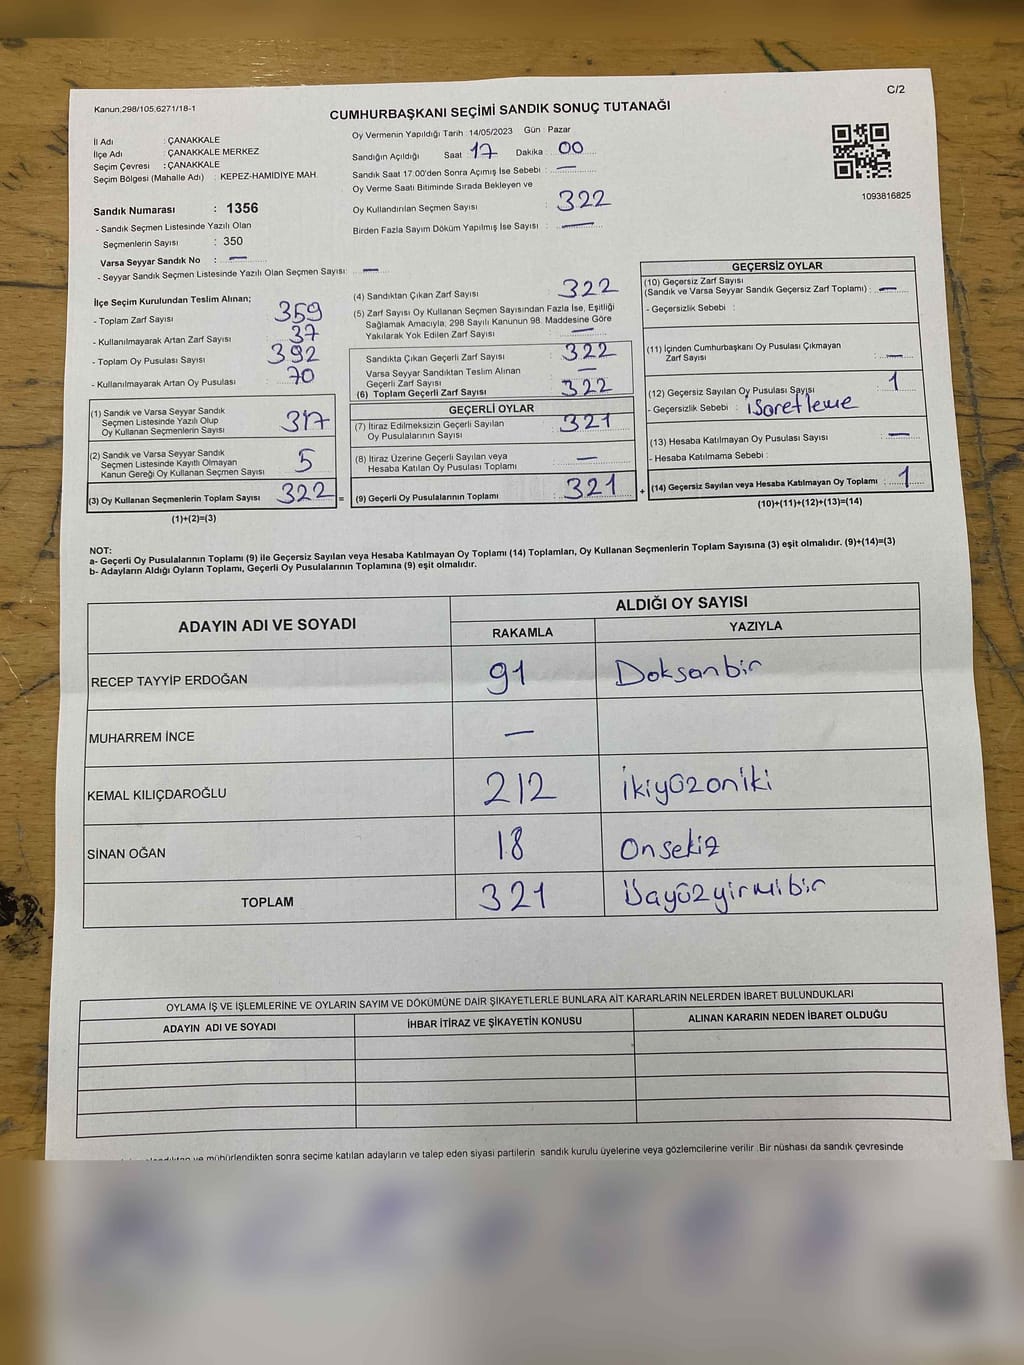 Kanun;298/105,6271/18-1
C/2
CUMHURBAŞKANI SEÇİMİ SANDIK SONUÇ TUTANAĞI
İl Adı : ÇANAKKALE
İlçe Adı : ÇANAKKALE MERKEZ
Seçim Çevresi : ÇANAKKALE
Seçim Bölgesi (Mahalle Adı) : KEPEZ-HAMİDİYE MAH.
Sandık Numarası : 1356
- Sandık Seçmen Listesinde Yazılı Olan
Seçmenlerin Sayısı : 350
Varsa Seyyar Sandık No : —
- Seyyar Sandık Seçmen Listesinde Yazılı Olan Seçmen Sayısı: —
Oy Vermenin Yapıldığı Tarih :14/05/2023 Gün : Pazar
Sandığın Açıldığı Saat : 17 Dakika : 00
Sandık Saat 17.00'den Sonra Açımış İse Sebebi : —
Oy Verme Saati Bitiminde Sırada Bekleyen ve
Oy Kullandırılan Seçmen Sayısı : 322
Birden Fazla Sayım Döküm Yapılmış İse Sayısı : —
1093816825
İlçe Seçim Kurulundan Teslim Alınan;
- Toplam Zarf Sayısı : 359
- Kullanılmayarak Artan Zarf Sayısı : 37
- Toplam Oy Pusulası Sayısı : 392
- Kullanılmayarak Artan Oy Pusulası : 70
(1) Sandık ve Varsa Seyyar Sandık
Seçmen Listesinde Yazılı Olup
Oy Kullanan Seçmenlerin Sayısı : 317
(2) Sandık ve Varsa Seyyar Sandık
Seçmen Listesinde Kayıtlı Olmayan
Kanun Gereği Oy Kullanan Seçmen Sayısı : 5
(3) Oy Kullanan Seçmenlerin Toplam Sayısı : 322 =
(1)+(2)=(3)
(4) Sandıktan Çıkan Zarf Sayısı : 322
(5) Zarf Sayısı Oy Kullanan Seçmen Sayısından Fazla İse, Eşitliği
Sağlamak Amacıyla; 298 Sayılı Kanunun 98. Maddesine Göre
Yakılarak Yok Edilen Zarf Sayısı : —
Sandıkta Çıkan Geçerli Zarf Sayısı : 322
Varsa Seyyar Sandıktan Teslim Alınan
Geçerli Zarf Sayısı : —
(6) Toplam Geçerli Zarf Sayısı : 322
GEÇERLİ OYLAR
(7) İtiraz Edilmeksizin Geçerli Sayılan
Oy Pusulalarının Sayısı : 321
(8) İtiraz Üzerine Geçerli Sayılan veya
Hesaba Katılan Oy Pusulası Toplamı : —
(9) Geçerli Oy Pusulalarının Toplamı : 321 +
GEÇERSİZ OYLAR
(10) Geçersiz Zarf Sayısı
(Sandık ve Varsa Seyyar Sandık Geçersiz Zarf Toplamı) : —
- Geçersizlik Sebebi :
(11) İçinden Cumhurbaşkanı Oy Pusulası Çıkmayan
Zarf Sayısı : —
(12) Geçersiz Sayılan Oy Pusulası Sayısı : 1
- Geçersizlik Sebebi : işaretleme
(13) Hesaba Katılmayan Oy Pusulası Sayısı : —
- Hesaba Katılmama Sebebi :
(14) Geçersiz Sayılan veya Hesaba Katılmayan Oy Toplamı : 1
(10)+(11)+(12)+(13)=(14)
NOT:
a- Geçerli Oy Pusulalarının Toplamı (9) ile Geçersiz Sayılan veya Hesaba Katılmayan Oy Toplamı (14) Toplamları, Oy Kullanan Seçmenlerin Toplam Sayısına (3) eşit olmalıdır. (9)+(14)=(3)
b- Adayların Aldığı Oyların Toplamı, Geçerli Oy Pusulalarının Toplamına (9) eşit olmalıdır.
ADAYIN ADI VE SOYADI ALDIĞI OY SAYISI
RAKAMLA YAZIYLA
RECEP TAYYİP ERDOĞAN 91 Doksanbir
MUHARREM İNCE —
KEMAL KILIÇDAROĞLU 212 İkiyüzoniki
SİNAN OĞAN 18 Onsekiz
TOPLAM 321 Üçyüzyirmibir
OYLAMA İŞ VE İŞLEMLERİNE VE OYLARIN SAYIM VE DÖKÜMÜNE DAİR ŞİKAYETLERLE BUNLARA AİT KARARLARIN NELERDEN İBARET BULUNDUKLARI
ADAYIN ADI VE SOYADI İHBAR İTİRAZ VE ŞİKAYETİN KONUSU ALINAN KARARIN NEDEN İBARET OLDUĞU
ve mühürlendikten sonra seçime katılan adayların ve talep eden siyasi partilerin sandık kurulu üyelerine veya gözlemcilerine verilir .Bir nüshası da sandık çevresinde